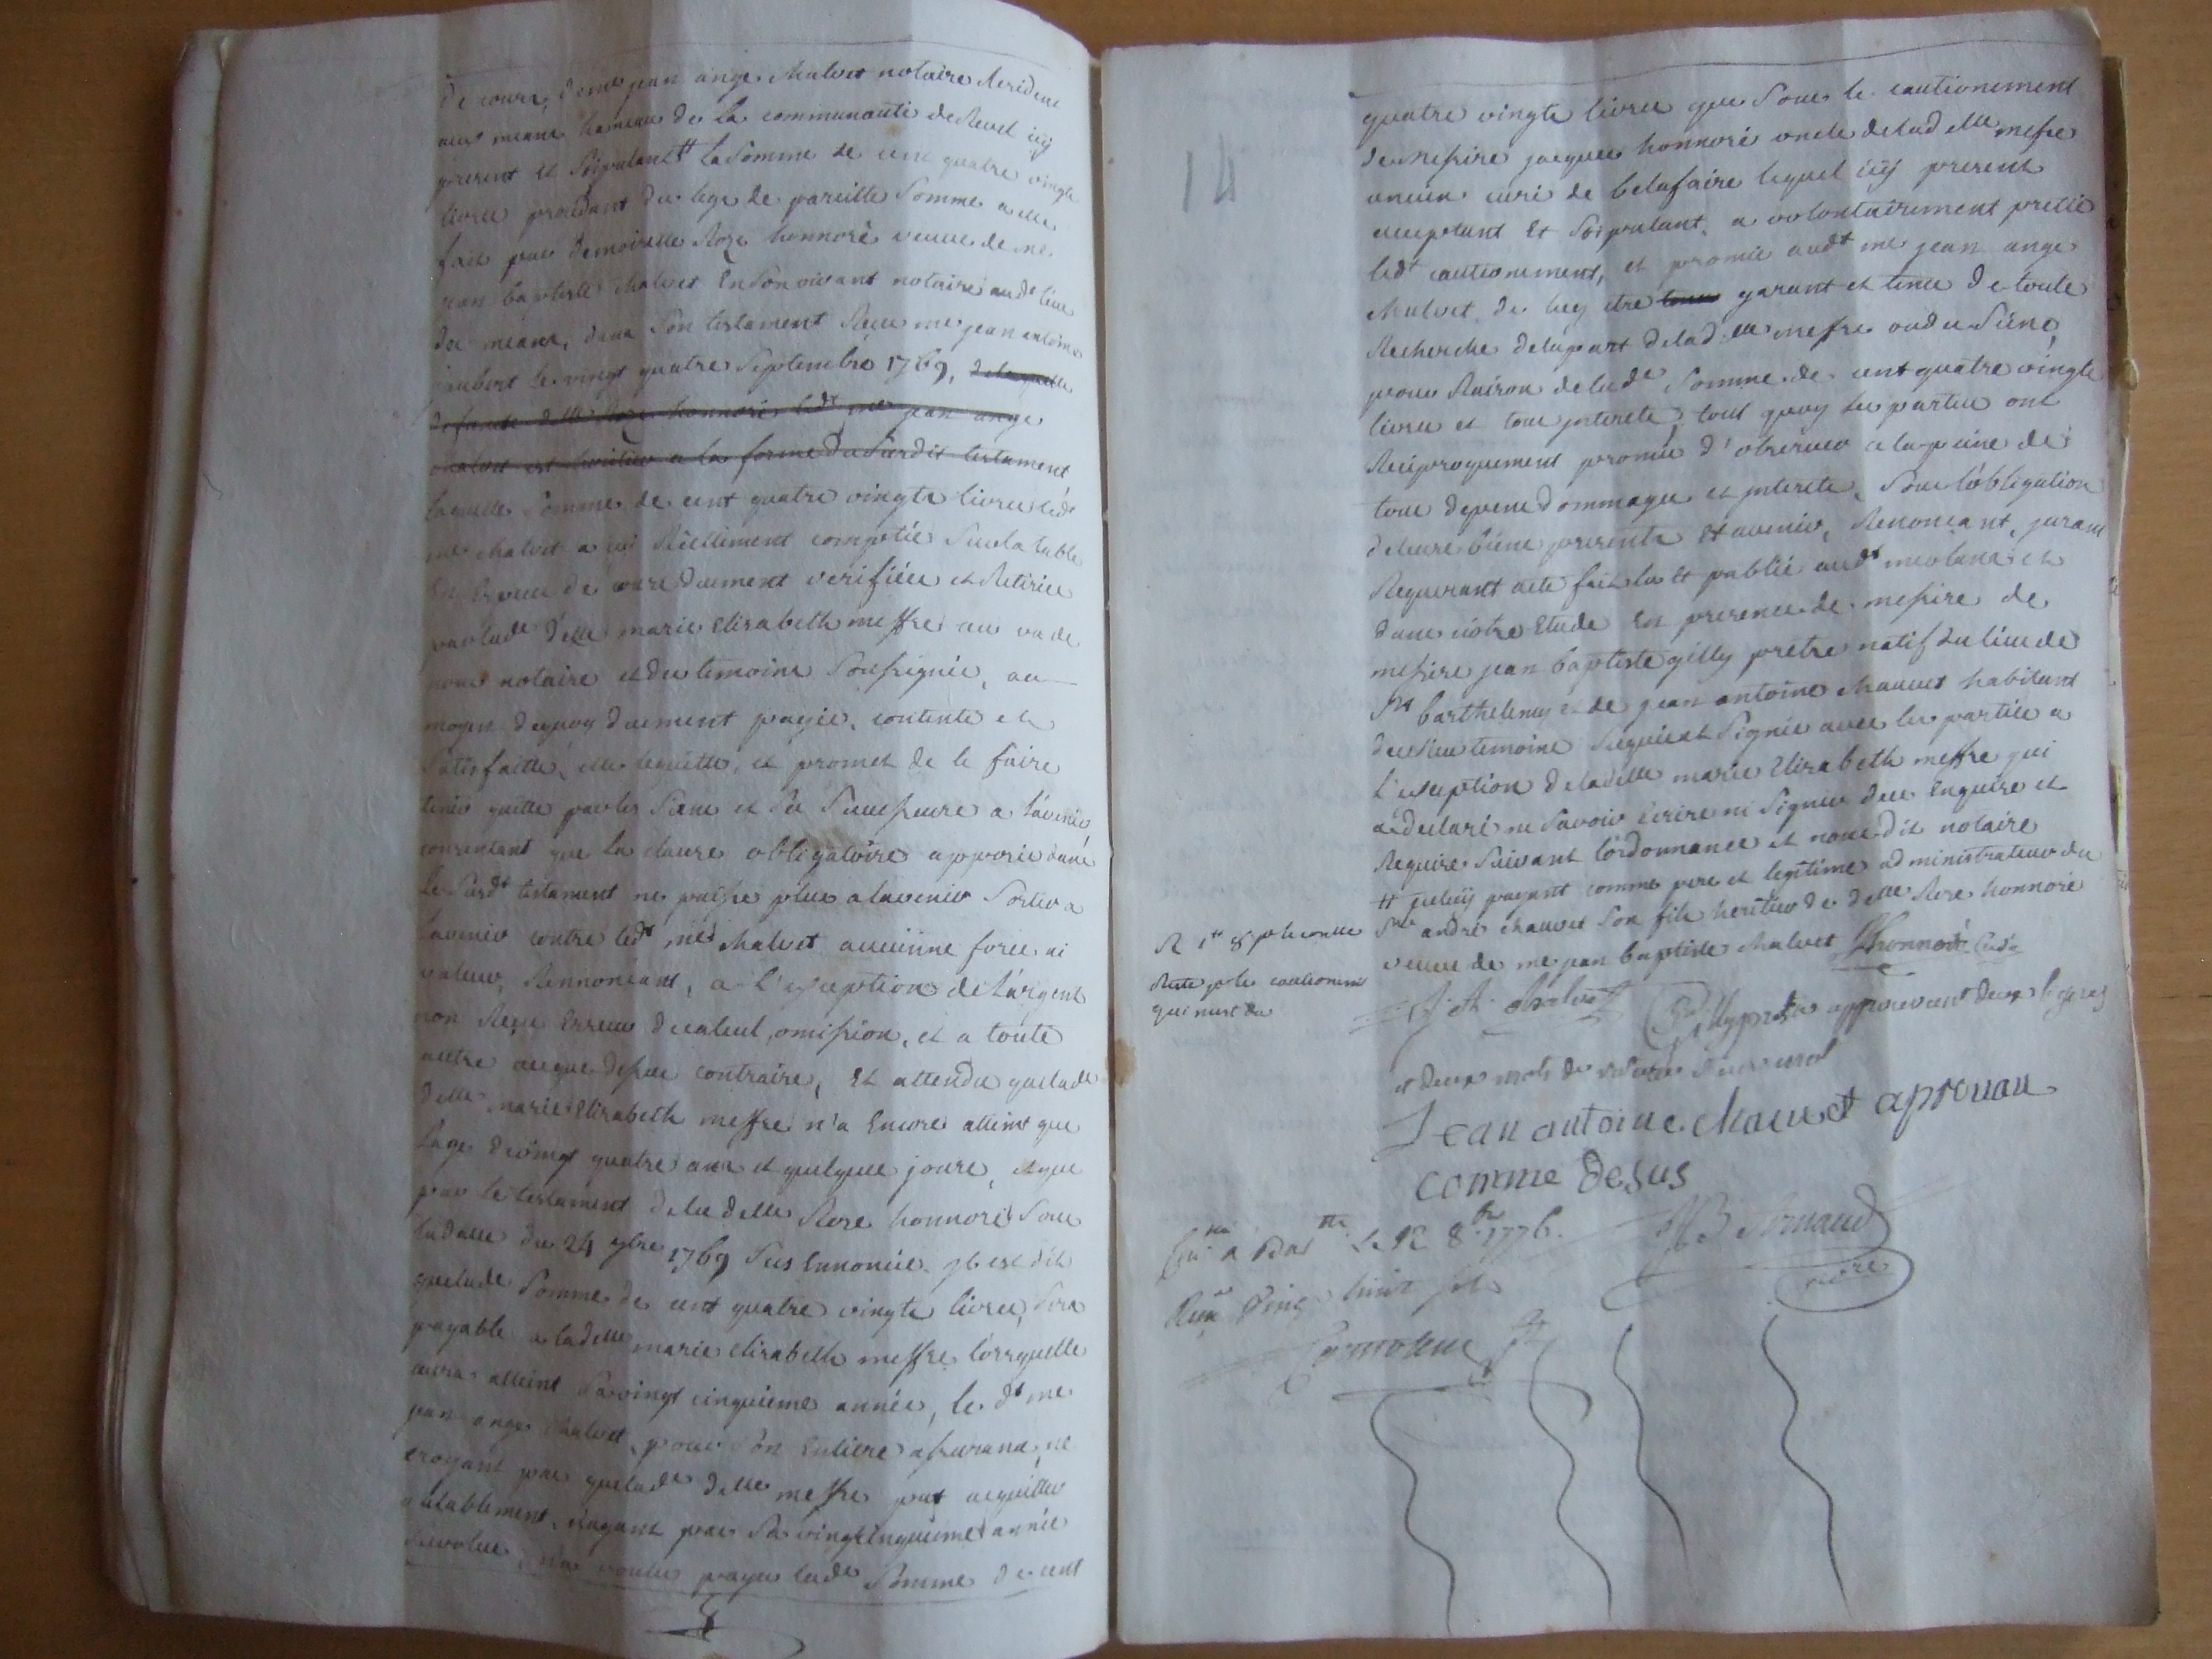 de cours, de me jean ange Malvet notaire Resident
aux means hameau de la communauté de Revel icy
present et stipulant tt la somme de cent quatre vingts
livres procedant du legs de pareille somme a elle
fait par demoiselle Rose honnoré veuve de me
jean baptiste Malvet En son vivant notaire aud lieu
des means, dans son testament Reçu me jean antoine
jaubert Le vingt quatre Septembre 1769, de laquelle
defunte delle Rose honnoré ledt me jean ange
Malvet est heritier a la forme du susdit testament
Laquelle somme de cent quatre vingts livres ledt
me Malvet a icy Réellement comptée sur la table
En Ecus de cours duement verifiée et Retirée
par lade delle marie Elisabeth meffre au vu de
nous notaire et des temoins soussignés, au
moyen dequoy duement payée, contente et
satisfaitte, elle lequitte, et promet de le faire
tenir quitte par les siens et ses successeurs a l'avenir
consentant que la clause obligatoire apposée dans
le susdt testament ne puisse plus alavenir sortir a
lavenir contre ledt me Malvet aucunne force ni
valeur, Rennonçant, a l'exception de l'argent
non Reçu Erreur de calcul, omission, et a toute
autre aceque dessus contraire, Et attendu que lade
delle marie Elisabeth meffre n'a Encore atteint que
l'age de vingt quatre ans et quelques jours, et que
par le testament de lade delle Rose honnoré sous
la datte du 24 7bre 1769 sus Ennoncée jl est dit
que lade somme de cent quatre vingts livres, sera
payable a ladelle marie Elisabeth meffre lorsquelle
aura atteint sa vingt cinquieme année, le dt me
jean ange Malvet, pour son Entiere assurance, ne
croyant pas que lade delle meffre put acquitter
valablement, n'ayant pas sa vingt cinquieme année
Revolue, n'a voulu payer lade somme de cent
14
quatre vingts livres que sous le cautionement
de messire jacques honnoré oncle de lad elle meffre
ancien curé de bellafaire lequel icy present
acceptant Et stipulant, a volontairement pretté
ledt cautionement, et promis audt me jean ange
Malvet de luy etre tenu garant et tenu de toute
Recherche de la part de lad elle meffre ou des siens,
pour Raison de lade somme de cent quatre vingts
livres et tous jnterets, tout quoy les parties ont
Reciproquement promis d'observer a la peine de
tous depens dommages et jnterets, sous l'obligation
de leurs biens presents Et avenir, Renonçant, jurant
Requerant acte fait lu Et publié audt meolans et
dans nôtre Etude En presence de messire de
messire jean baptiste gilly prêtre natif du lieu de
st barthelemy et de jean antoine Mauvet habitant
des lieu temoins Requis et signés avec les parties a
l'exception de ladelle marie Elisabeth meffre qui
a declaré ne savoir Ecrire ni signer de ce Enquise et
Requise suivant l'ordonnance et nous dit notaire
tt jceluy payant comme pere et legitime administrateur du
sr andré Mauvet son fils heritier de delle Rose honnoré
veuve de me jean baptiste Malvet Jhonnoré Curé
R 1tt 8s p le comtte
Reste p les cautionemt
qui n'est du
J A Malvet
Gilly prêtre approuvant deux lignes
et deux mots de rature
Jean antoine Mauvet aprouvan
comme desus
Con.lé a Bar.tte Le 12 8bre 1776.
Reçu vingt huit sols
JB Arnaud
nore